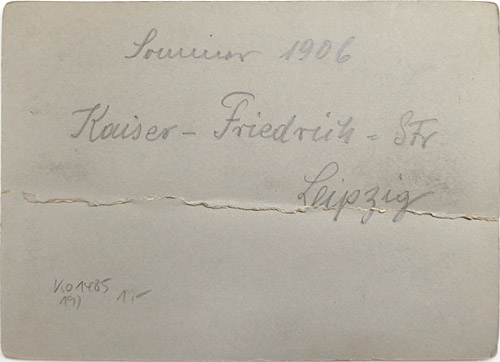 Sommer 1906
Kaiser-Friedrich-Str
Leipzig
K01485
19) 1,-